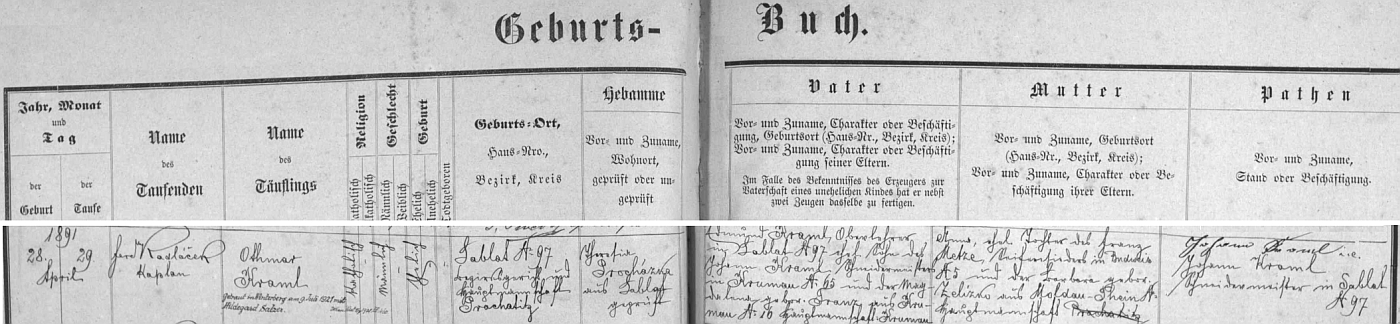 Geburts-Buch.
Jahr, Monat
und
Tag
der
Geburt
der
Taufe
Name
des
Taufenden
Name
des
Täuflings
Religion
Katholisch
Geschlecht
Männlich
Weiblich
Geburt
Ehelich
Unehelich
Todtgeboren
Geburts-Ort,
Haus-Nro.,
Bezirk, Kreis
Hebamme
Vor- und Zuname,
Wohnort,
geprüft oder un-
geprüft
Vater
Vor- und Zuname, Charakter oder Beschäfti-
gung, Geburtsort (Haus-Nr., Bezirk, Kreis);
Vor- und Zuname, Charakter oder Beschäfti-
gung seiner Eltern.
Im Falle des Bekenntnisses des Erzeugers zur
Vaterschaft eines unehelichen Kindes hat er nebst
zwei Zeugen dasselbe zu fertigen.
Mutter
Vor- und Zuname, Geburtsort
(Haus-Nr., Bezirk, Kreis);
Vor- und Zuname, Charakter oder Be-
schäftigung ihrer Eltern.
Pathen
Vor- und Zuname,
Stand oder Beschäftigung.
1891
28.
April
29
Kaplan
Othmar
Kraml
Getraut in Winterberg am 9. Juli 1921 mit
Hildegard
Katholisch
Männlich
Ehelich
Sablat N. 97
Bezirksgericht und
Hauptmannschaft
Prachatitz
Theresia
Procházka
aus Sablat
geprüft
Edmund Kraml, Oberlehrer
in Sablat N. 97, ehel. Sohn des
Johann Kraml, Schneidermeister
in Krumau N. 15 und der Mag-
dalena, gebor. Franz aus Kru-
mau N. 10 Hauptmannschaft Krumau
Anna, ehel. Tochter des Franz
N. 5 und der Barbara gebor.
Hauptmannschaft Prachatitz
Johann Kraml
i.e.
Johann Kraml
Schneidermeister in Sablat
N. 97